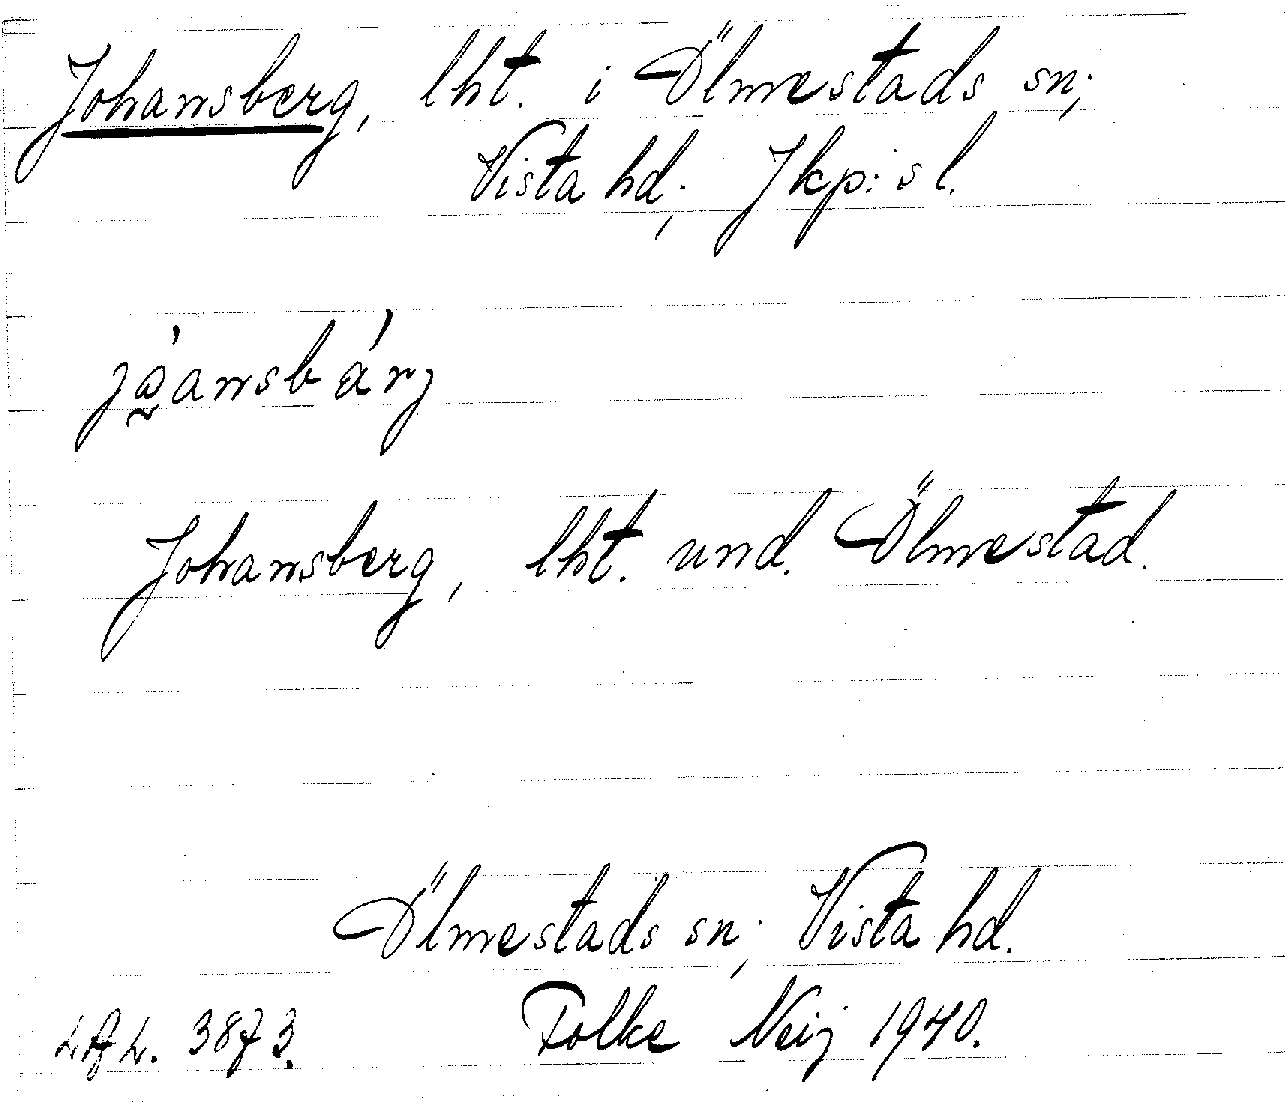 Johansberg, lht. i Ölmestads sn;
Vista hd; Jkp:s l.
jå̰̀ansbárj
Johansberg, lht. und. Ölmestad.
Ölmestads sn; Vista hd.
Folke Neij 1940.
3873.